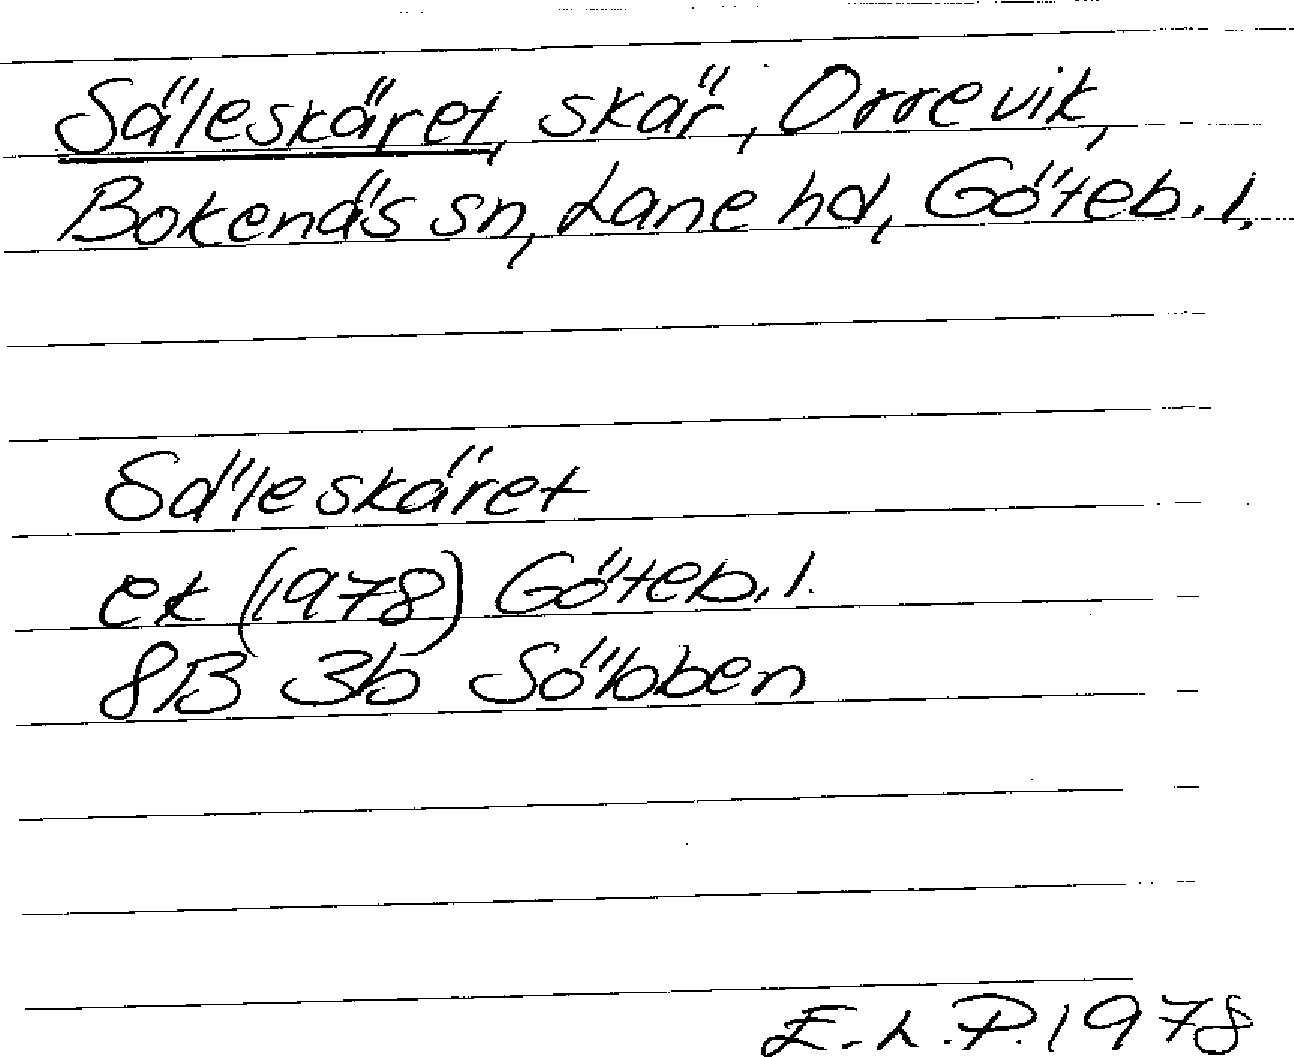 Säleskäret, skär, Orrevik,
Bokenäs sn, Lane hd, Göteb. l.
Säleskäret
ek (1978) Göteb. l.
8B 3b Söbben
E.L.P. 1978